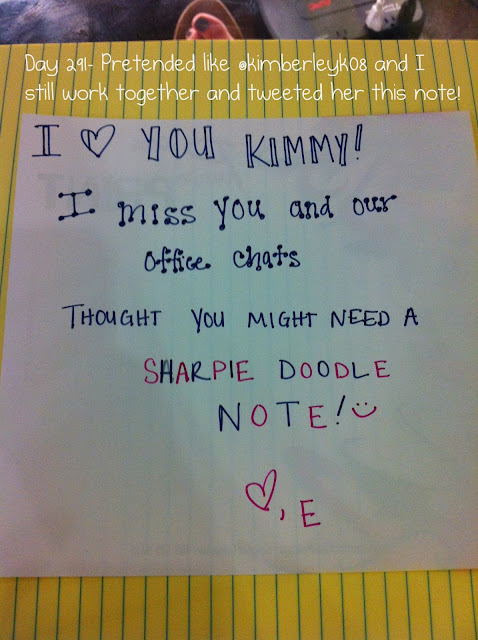 Day 291- Pretended like @kimberleyk08 and I
still work together and tweeted her this note!
I ♡ YOU KIMMY!
I miss you and our
office chats
THOUGHT YOU MIGHT NEED A
SHARPIE DOODLE
NOTE! :)
♡, E